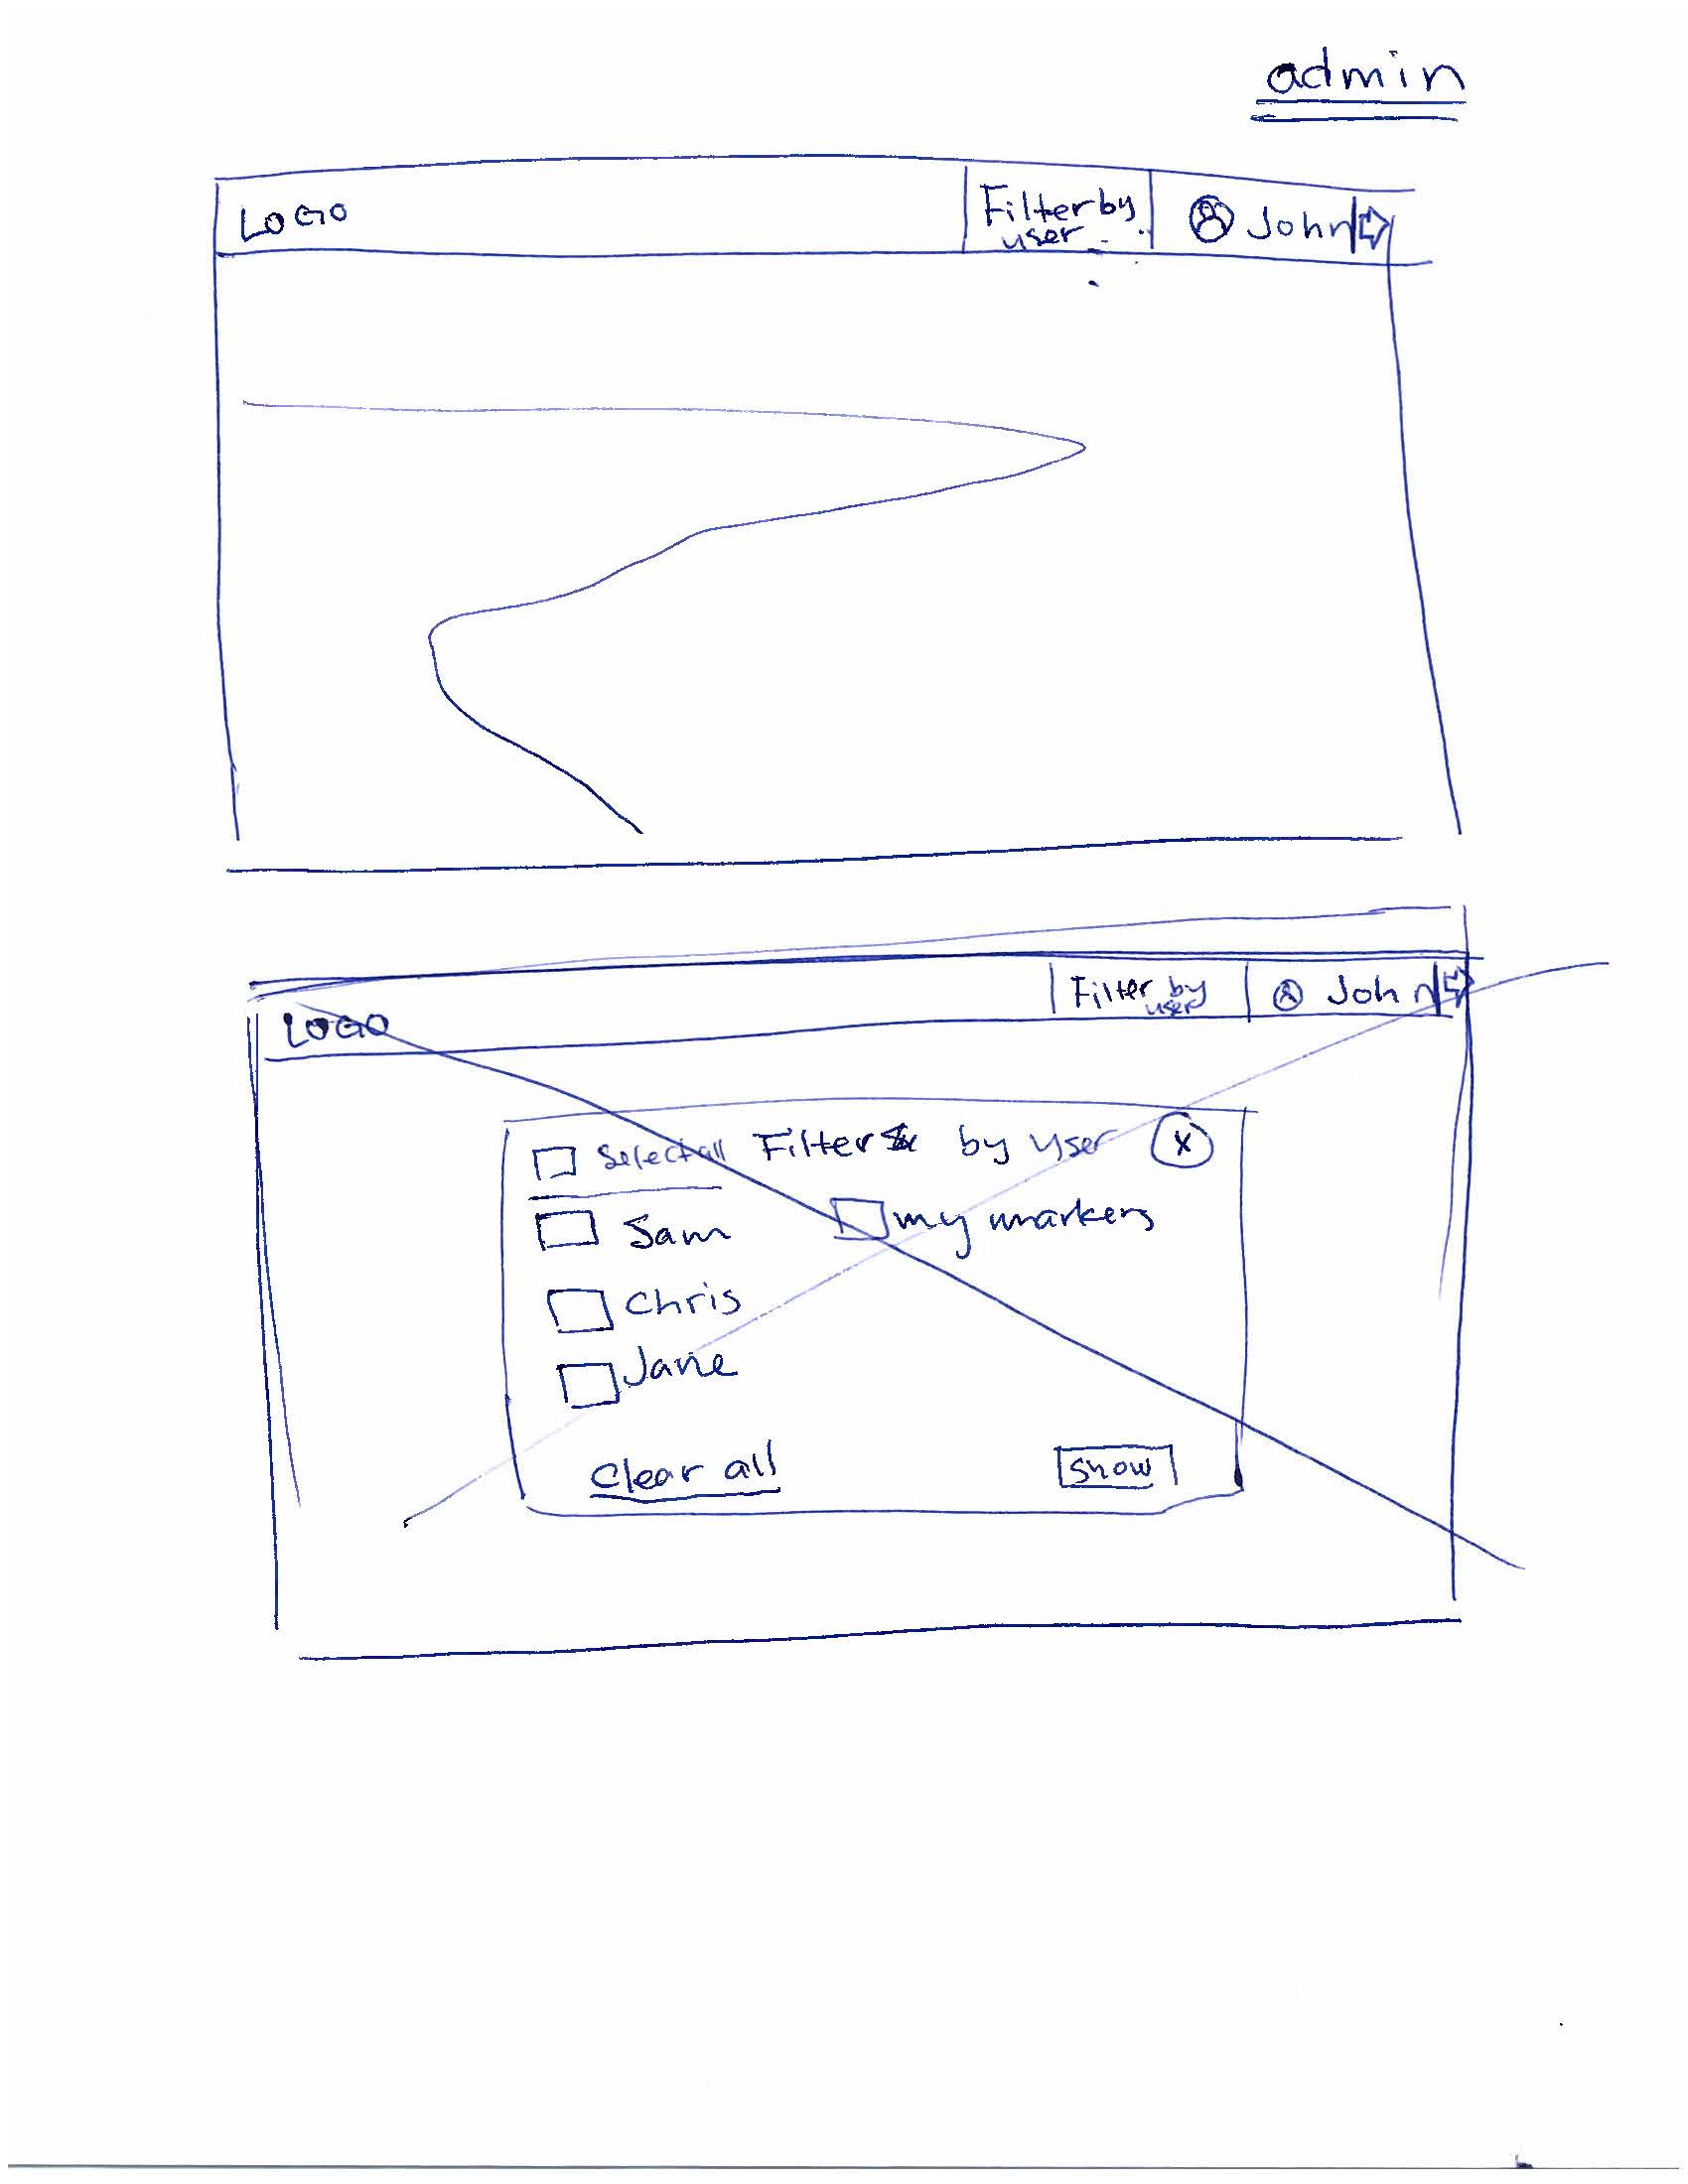 admin
LOGO
Filter by
user
John
LOGO
Filter by
user
John
Select all
Filter by user
X
Sam
my markers
Chris
Jane
Clear all
Show